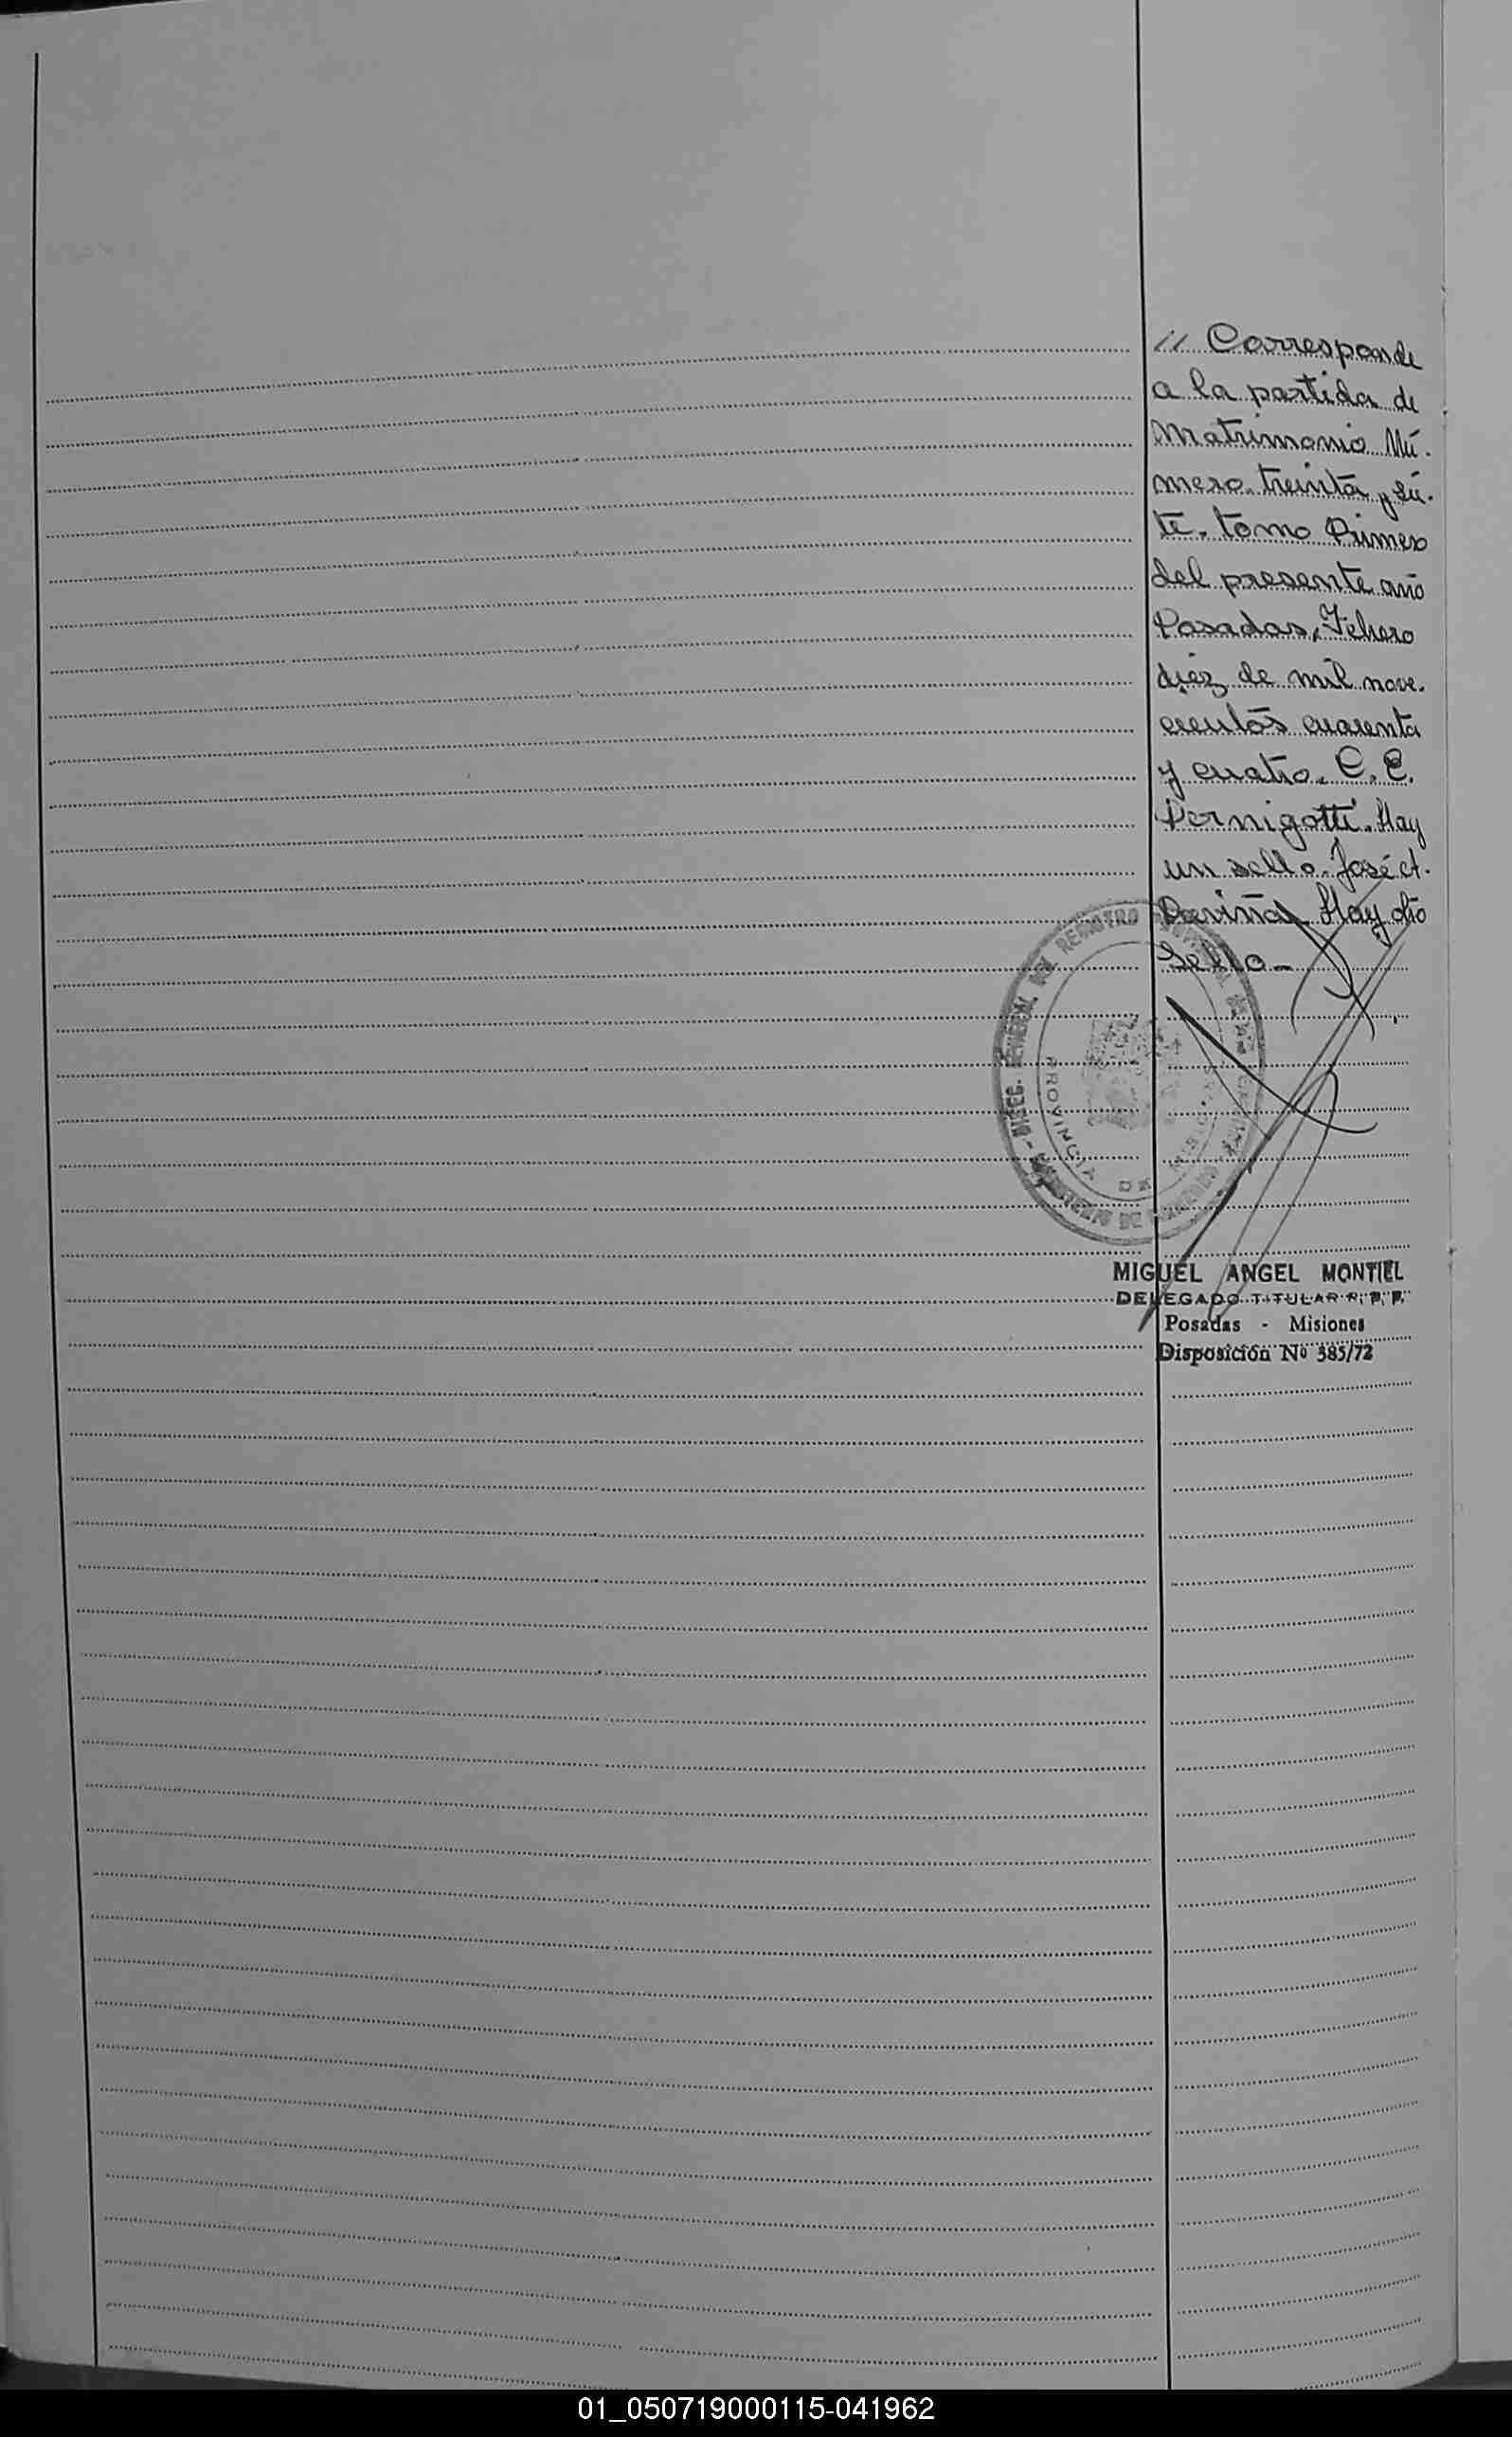 // Corresponde
a la partida de
Matrimonio Nú-
mero treinta y sie-
te. tomo Primero
del presente año
Posadas, Febrero
diez de mil nove-
cientos cuarenta
y cuatro. C. E.
Pernigotti. Hay
un sello. José A.
Hay otro
Sello-
DIREC. GENERAL DEL REGISTRO PROVINCIAL DE LAS PERSONAS
PROVINCIA DE MISIONES
MIGUEL ANGEL MONTIEL
DELEGADO TITULAR R. P. P.
Posadas - Misiones
Disposición Nº 385/72
01_050719000115-041962